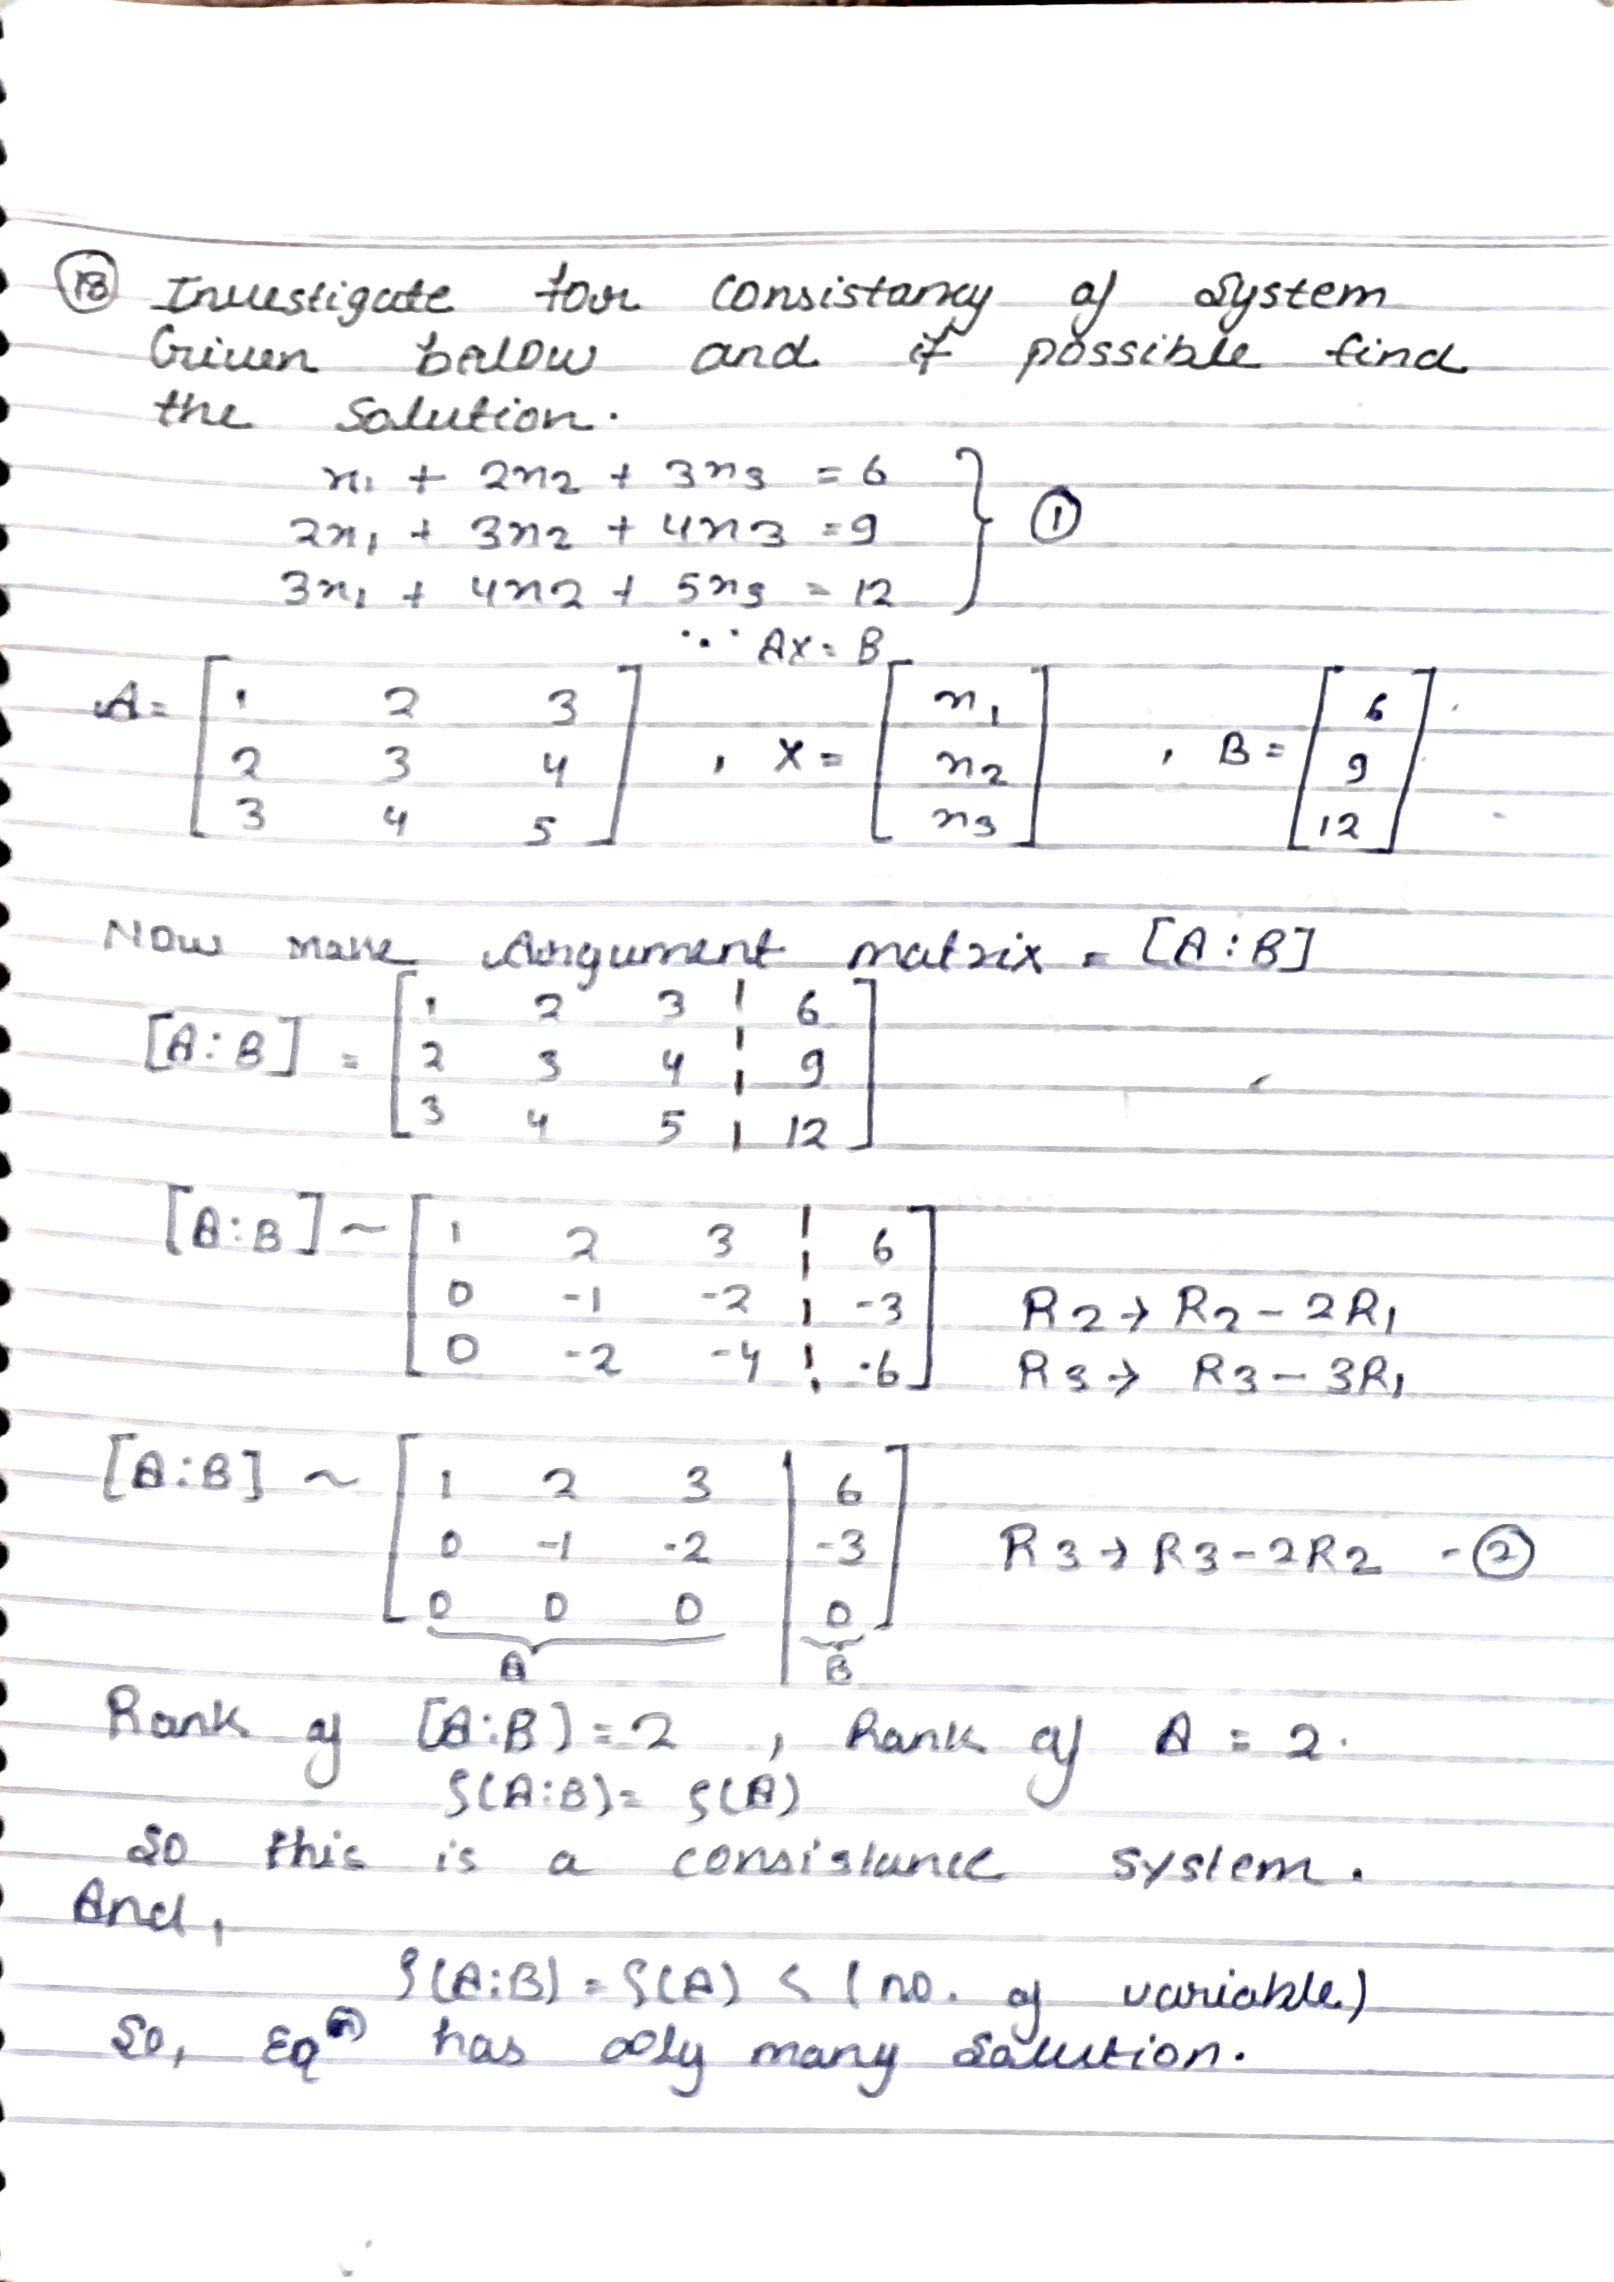 13 Investigate for Consistancy of System
Given below and if possible find
the Solution.
x1 + 2x2 + 3x3 = 6
2x1 + 3x2 + 4x3 = 9 } 1
3x1 + 4x2 + 5x3 = 12
∵ AX = B
A = [ 1 2 3 , X = [ x1 , B = [ 6
2 3 4 x2 9
3 4 5 ] x3 ] 12 ]
Now make Aurgument matrix = [A:B]
[A:B] = [ 1 2 3 ¦ 6
2 3 4 ¦ 9
3 4 5 ¦ 12 ]
[A:B] ~ [ 1 2 3 ¦ 6
0 -1 -2 ¦ -3 ] R2 → R2 - 2R1
0 -2 -4 ¦ -6 ] R3 → R3 - 3R1
[A:B] ~ [ 1 2 3 | 6
0 -1 -2 | -3 R3 → R3 - 2R2 - 2
0 0 0 | 0 ]
A B
Rank of [A:B] = 2 , Rank of A = 2.
ρ(A:B) = ρ(A)
So this is a consistance system.
And,
ρ(A:B) = ρ(A) < (no. of variable)
So, Eq(n) has ∞ly many Solution.